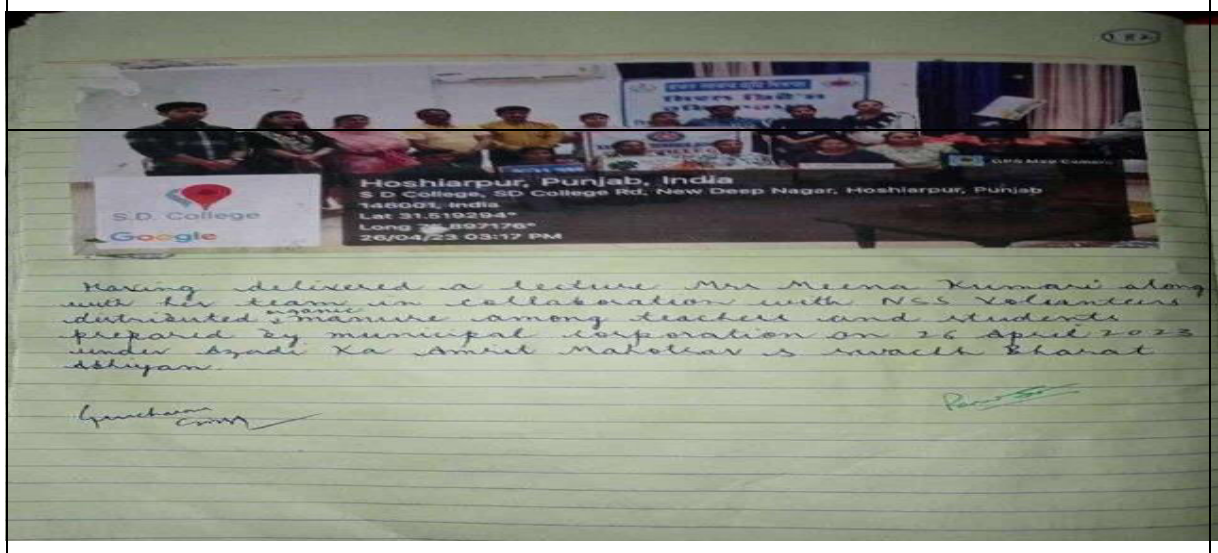 182
GPS Map Camera
Hoshiarpur, Punjab, India
S D College, SD College Rd, New Deep Nagar, Hoshiarpur, Punjab
146001, India
Lat 31.519294°
Long 75.897176°
26/04/23 03:17 PM
S.D. College
Google
Having delivered a lecture Mrs Meena Kumari along
with her team in collaboration with NSS Voleanteers
distributed organic manure among teachers and students
prepared by municipal corporation on 26 April 2023
under Azadi Ka Amrit Mahotsav & swachh Bharat
Abhiyan.
Gurcharan